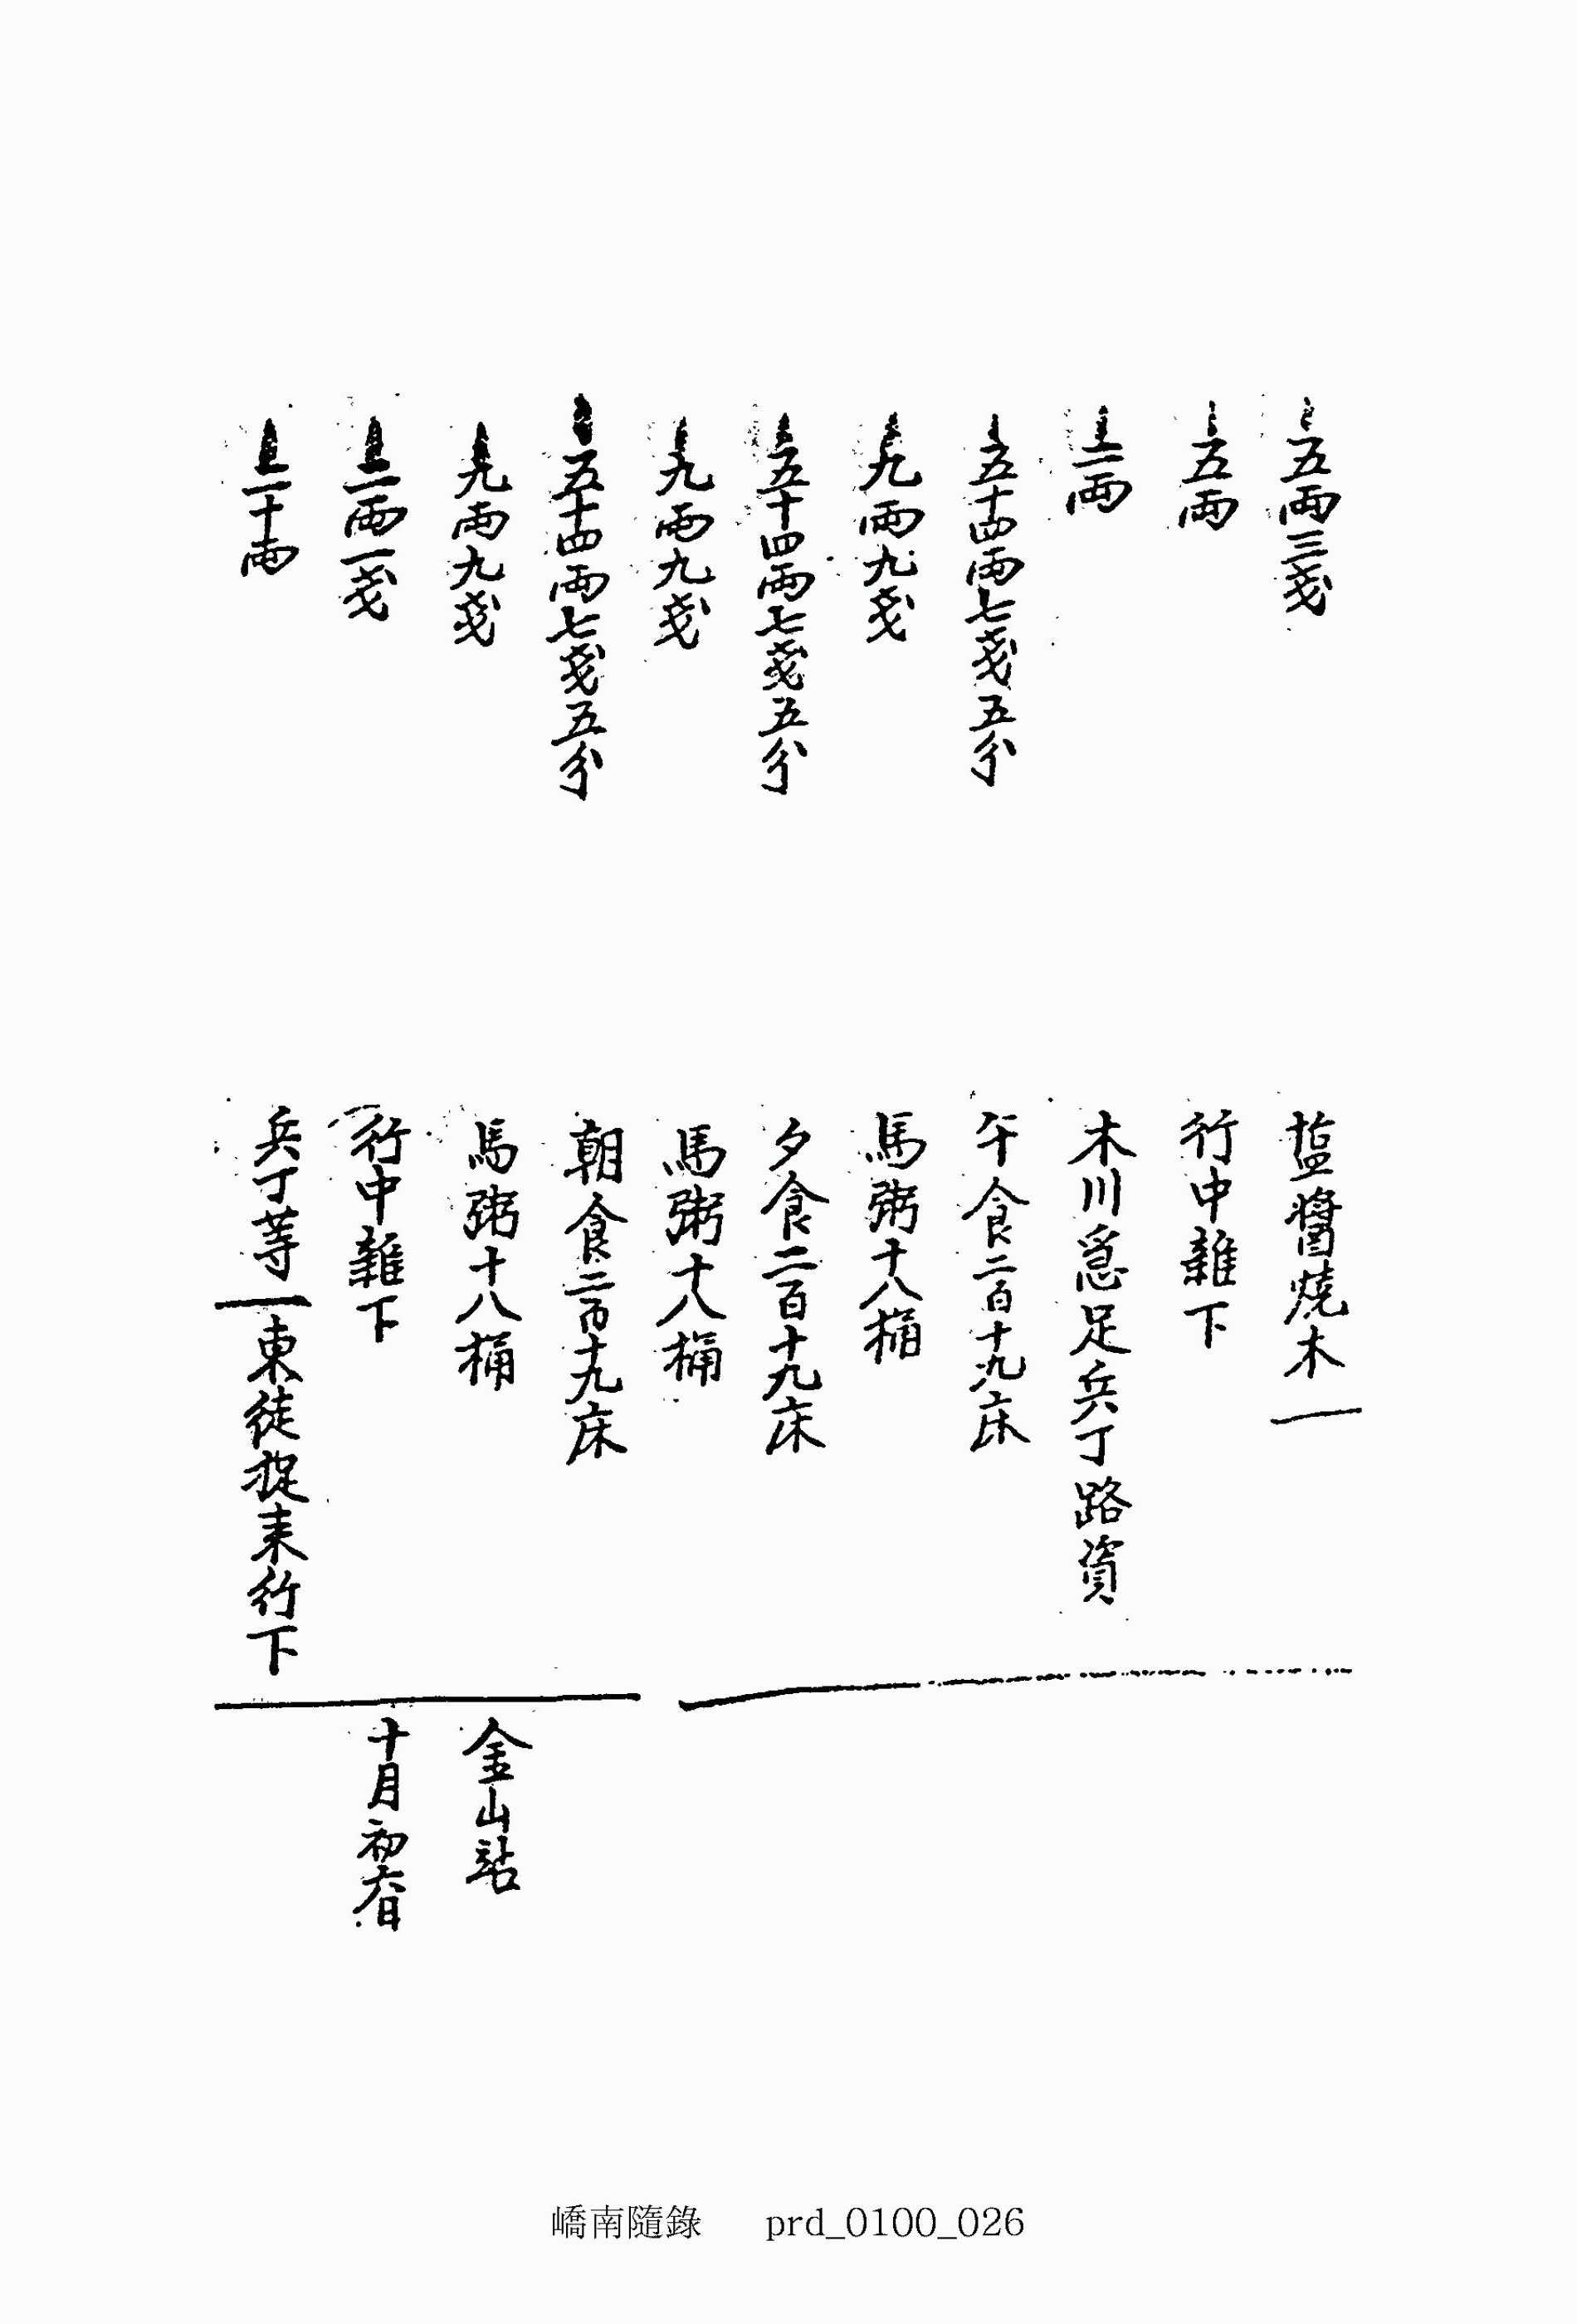 五兩三戔 塩醬燒木
五兩 行中雜下
二兩 木川急足兵丁路資
五十四兩七戔五分 午食二百十九床
九兩九戔 馬粥十八桶
五十四兩七戔五分 夕食二百十九床
九兩九戔 馬粥十八桶
五十四兩七戔五分 朝食二百十九床
九兩九戔 馬粥十八桶 金山站
二兩一戔 行中雜下 十月初六日
二十兩 兵丁等 東徒捉来行下
嶠南隨錄 prd_0100_026